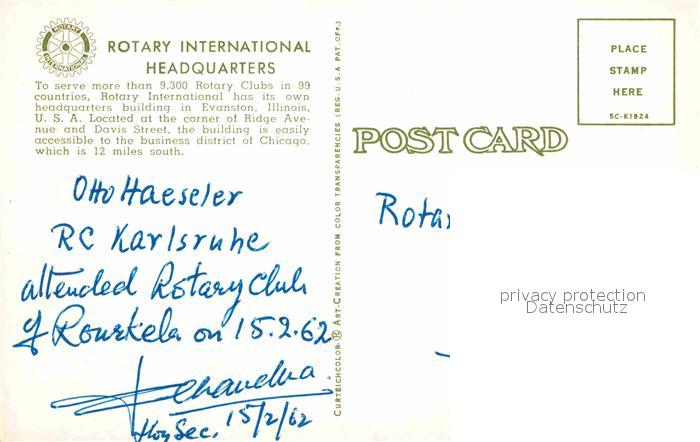 ROTARY INTERNATIONAL
ROTARY INTERNATIONAL
HEADQUARTERS
To serve more than 9,300 Rotary Clubs in 99
countries, Rotary International has its own
headquarters building in Evanston, Illinois,
U. S. A. Located at the corner of Ridge Ave-
nue and Davis Street, the building is easily
accessible to the business district of Chicago,
which is 12 miles south.
Otto Haeseler
RC Karlsruhe
attended Rotary Club
of Rourkela on 15.2.62
Hon Sec. 15/2/62
CURTEICHCOLOR ® ART-CREATION FROM COLOR TRANSPARENCIES (REG. U.S.A. PAT. OFF.)
POST CARD
PLACE
STAMP
HERE
5C-K1824
Rotar
privacy protection
Datenschutz